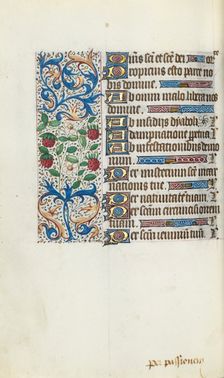 Omnes sancti et sancte dei
Propicius esto parce no
bis domine.
Ab omni malo libera nos
domine.
Ab insidiis dyaboli
A dampnatione perpetua
Ab infestationibus demo
num
Per misterium sancte incar
nationis tue.
Per natiuitatem tuam.
Per sanctam circuncisionem
tuam.
Per sanctum ieiunium tuum
per passionem